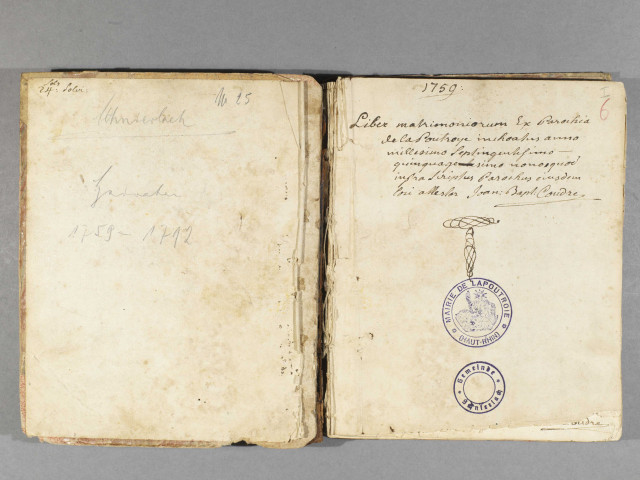 fols
64. Solv.
No 25
Schnierlach
Heirathen
1759 - 1792
1759:
Liber matrimoniorum Ex Parochia
de la Poutroye inchoatus anno
millesimo Septingentesimo
quinquagesimo nono quod
infra Scriptus Parochus eiusdem
loci attestor Joan: Bapt Coudre
MAIRIE DE LAPOUTROIE
(HAUT-RHIN)
Gemeinde
Schnierlach
Coudre